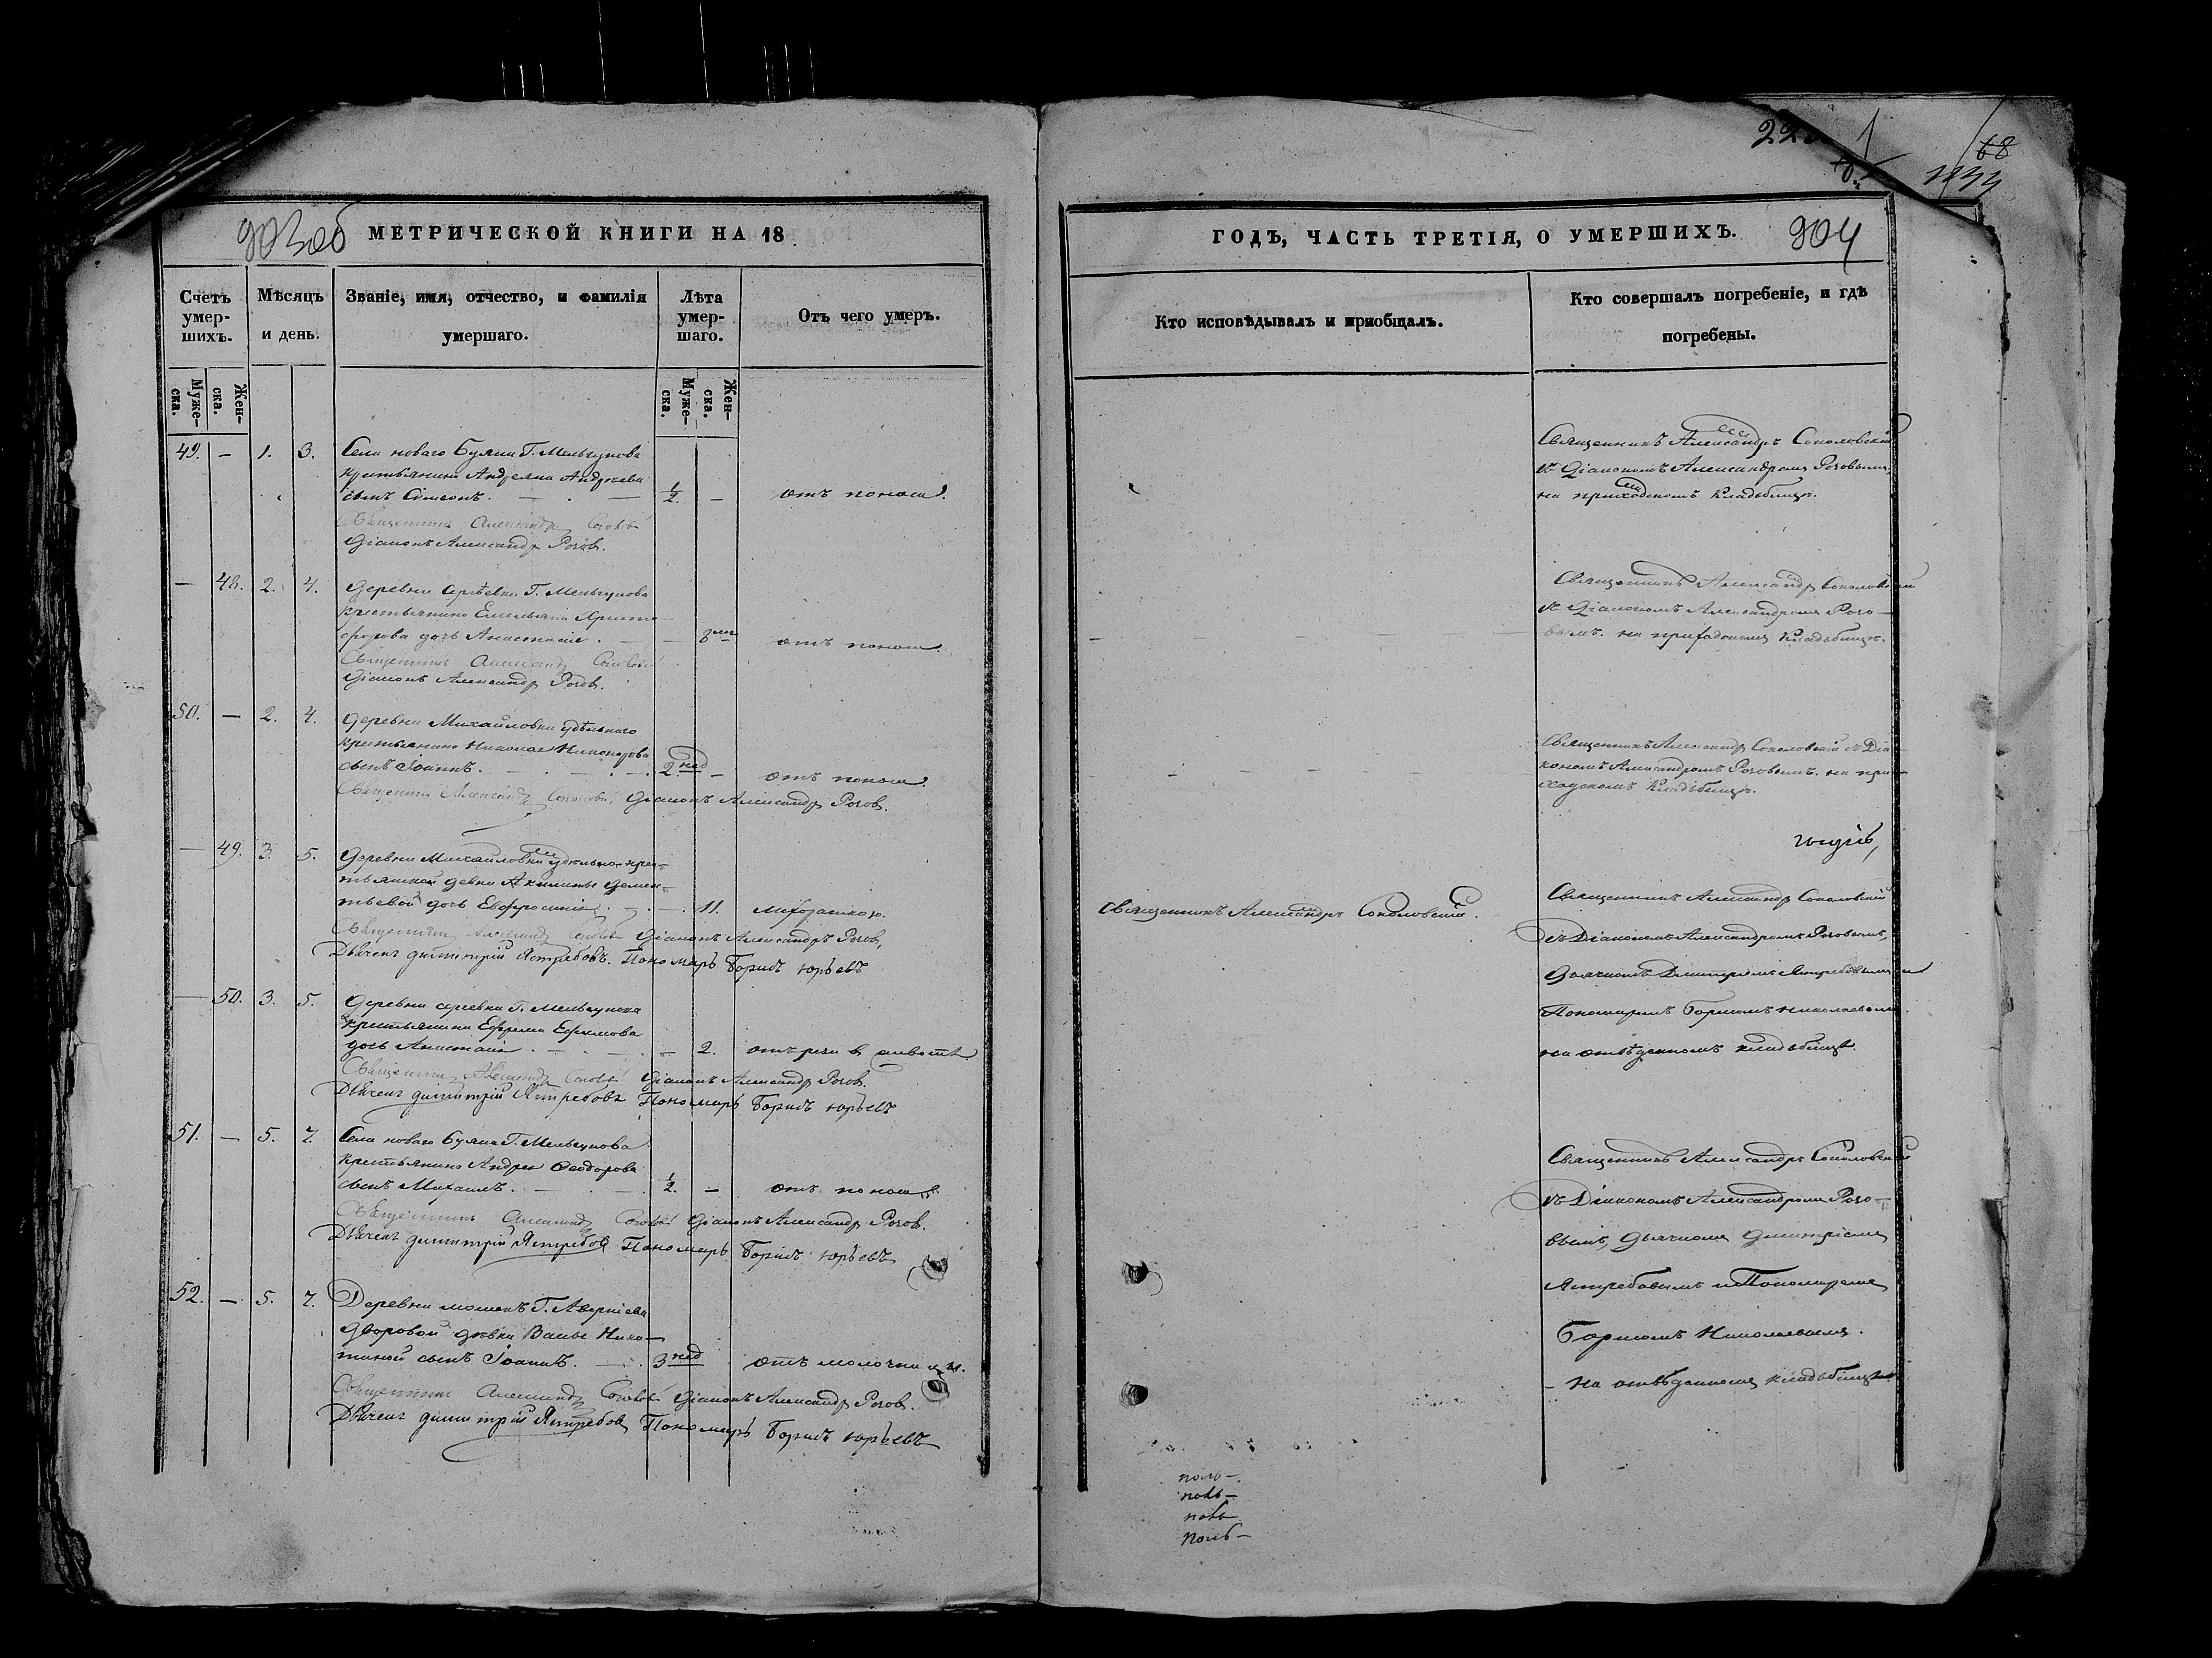 903 об МЕТРИЧЕСКОЙ КНИГИ НА 18
Счетъ умер-шихъ.
Мѣсяцъ и день.
Званіе, имя, отчество, и фамилія умершаго.
Лѣта умер-шаго.
Отъ чего умеръ.
Муже-ска.
Жен-ска.
Муже-ска.
Жен-ска.
49. — 1. 3. Села новаго Буяна Г. Мельгунова
крестьянина Андреяна Андреева
сынъ Симеонъ. — 1/2. — отъ поноса.
Священникъ Александръ
Діаконъ Александръ Розов.
— 48. 2. 4. Деревни Г. Мельгунова
крестьянина Емельяна Христо-
форова дочь Анастасія. — — отъ поноса.
Священникъ Александръ
Діаконъ Александръ Розов.
50. — 2. 4. Деревни Михайловки удѣльнаго
крестьянина Николая Никонорова
сынъ Іоаннъ. — 2. нед — отъ поноса.
Священникъ Александръ Діаконъ Александръ Розов.
— 49. 3. 5. Деревни Михайловки удѣльно- крес-
тьянской девки Акилины Демен-
тьевой дочь Евфросинія. — 11. лихорадкою.
Священникъ Александръ Діаконъ Александръ Розов,
Дьячекъ Димитрій Ястребовъ. Пономарь Борисъ Юрьевъ
— 50. 3. 5. Деревни Г. Мельгунова
крестьянина Ефрема Ефимова
дочь Анастасія. — 2. отъ рези в животѣ
Священникъ Александръ Діаконъ Александръ Розов.
Дьячекъ Димитрій Ястребовъ Пономарь Борисъ Юрьевъ
51. — 5. 7. Села новаго Буяна Г. Мельгунова
крестьянина Андрея Феодорова
сынъ Михаилъ. — 1/2. — отъ поноса.
Священникъ Александръ Діаконъ Александръ Розов.
Дьячекъ Димитрій Ястребов Пономарь Борисъ Юрьевъ
52. — 5. 7. Деревни Г. Аверкіева
дворовой дѣвки Вассы Ники-
тиной сынъ Іоаннъ. — 3 нед отъ молочницы.
Священникъ Александръ Діаконъ Александръ Розов.
Дьячекъ Димитрій Ястребов Пономарь Борисъ Юрьевъ
68
ГОДЪ, ЧАСТЬ ТРЕТІЯ, О УМЕРШИХЪ. 904
Кто исповѣдывалъ и пріобщалъ.
Кто совершалъ погребеніе, и гдѣ погребены.
Священникъ Александръ Соколовскій
съ Діакономъ Александромъ Розовымъ.
на приходскомъ кладьбищѣ.
Священникъ Александръ Соколовскій
съ Діакономъ Александромъ Розо-
вымъ. на приходскомъ кладьбищѣ.
Священникъ Александр Соколовскій съ Діа-
кономъ Александромъ Розовымъ. на при-
ходскомъ кладьбищѣ.
Священникъ Александръ Соколовскій.
Священникъ Александр Соколовскій
съ Діакономъ Александромъ Розовымъ,
Дьячкомъ Димитріемъ Ястребовымъ и
Пономаремъ Борисомъ Николаевымъ.
на отвѣденномъ кладьбищѣ.
Священникъ Александръ Соколовскій
съ Діакономъ Александромъ Розо-
вымъ, Дьячкомъ Димитріемъ
Ястребовымъ и Пономаремъ
Борисомъ Николаевымъ.
— на отвѣденномъ кладьбищѣ.